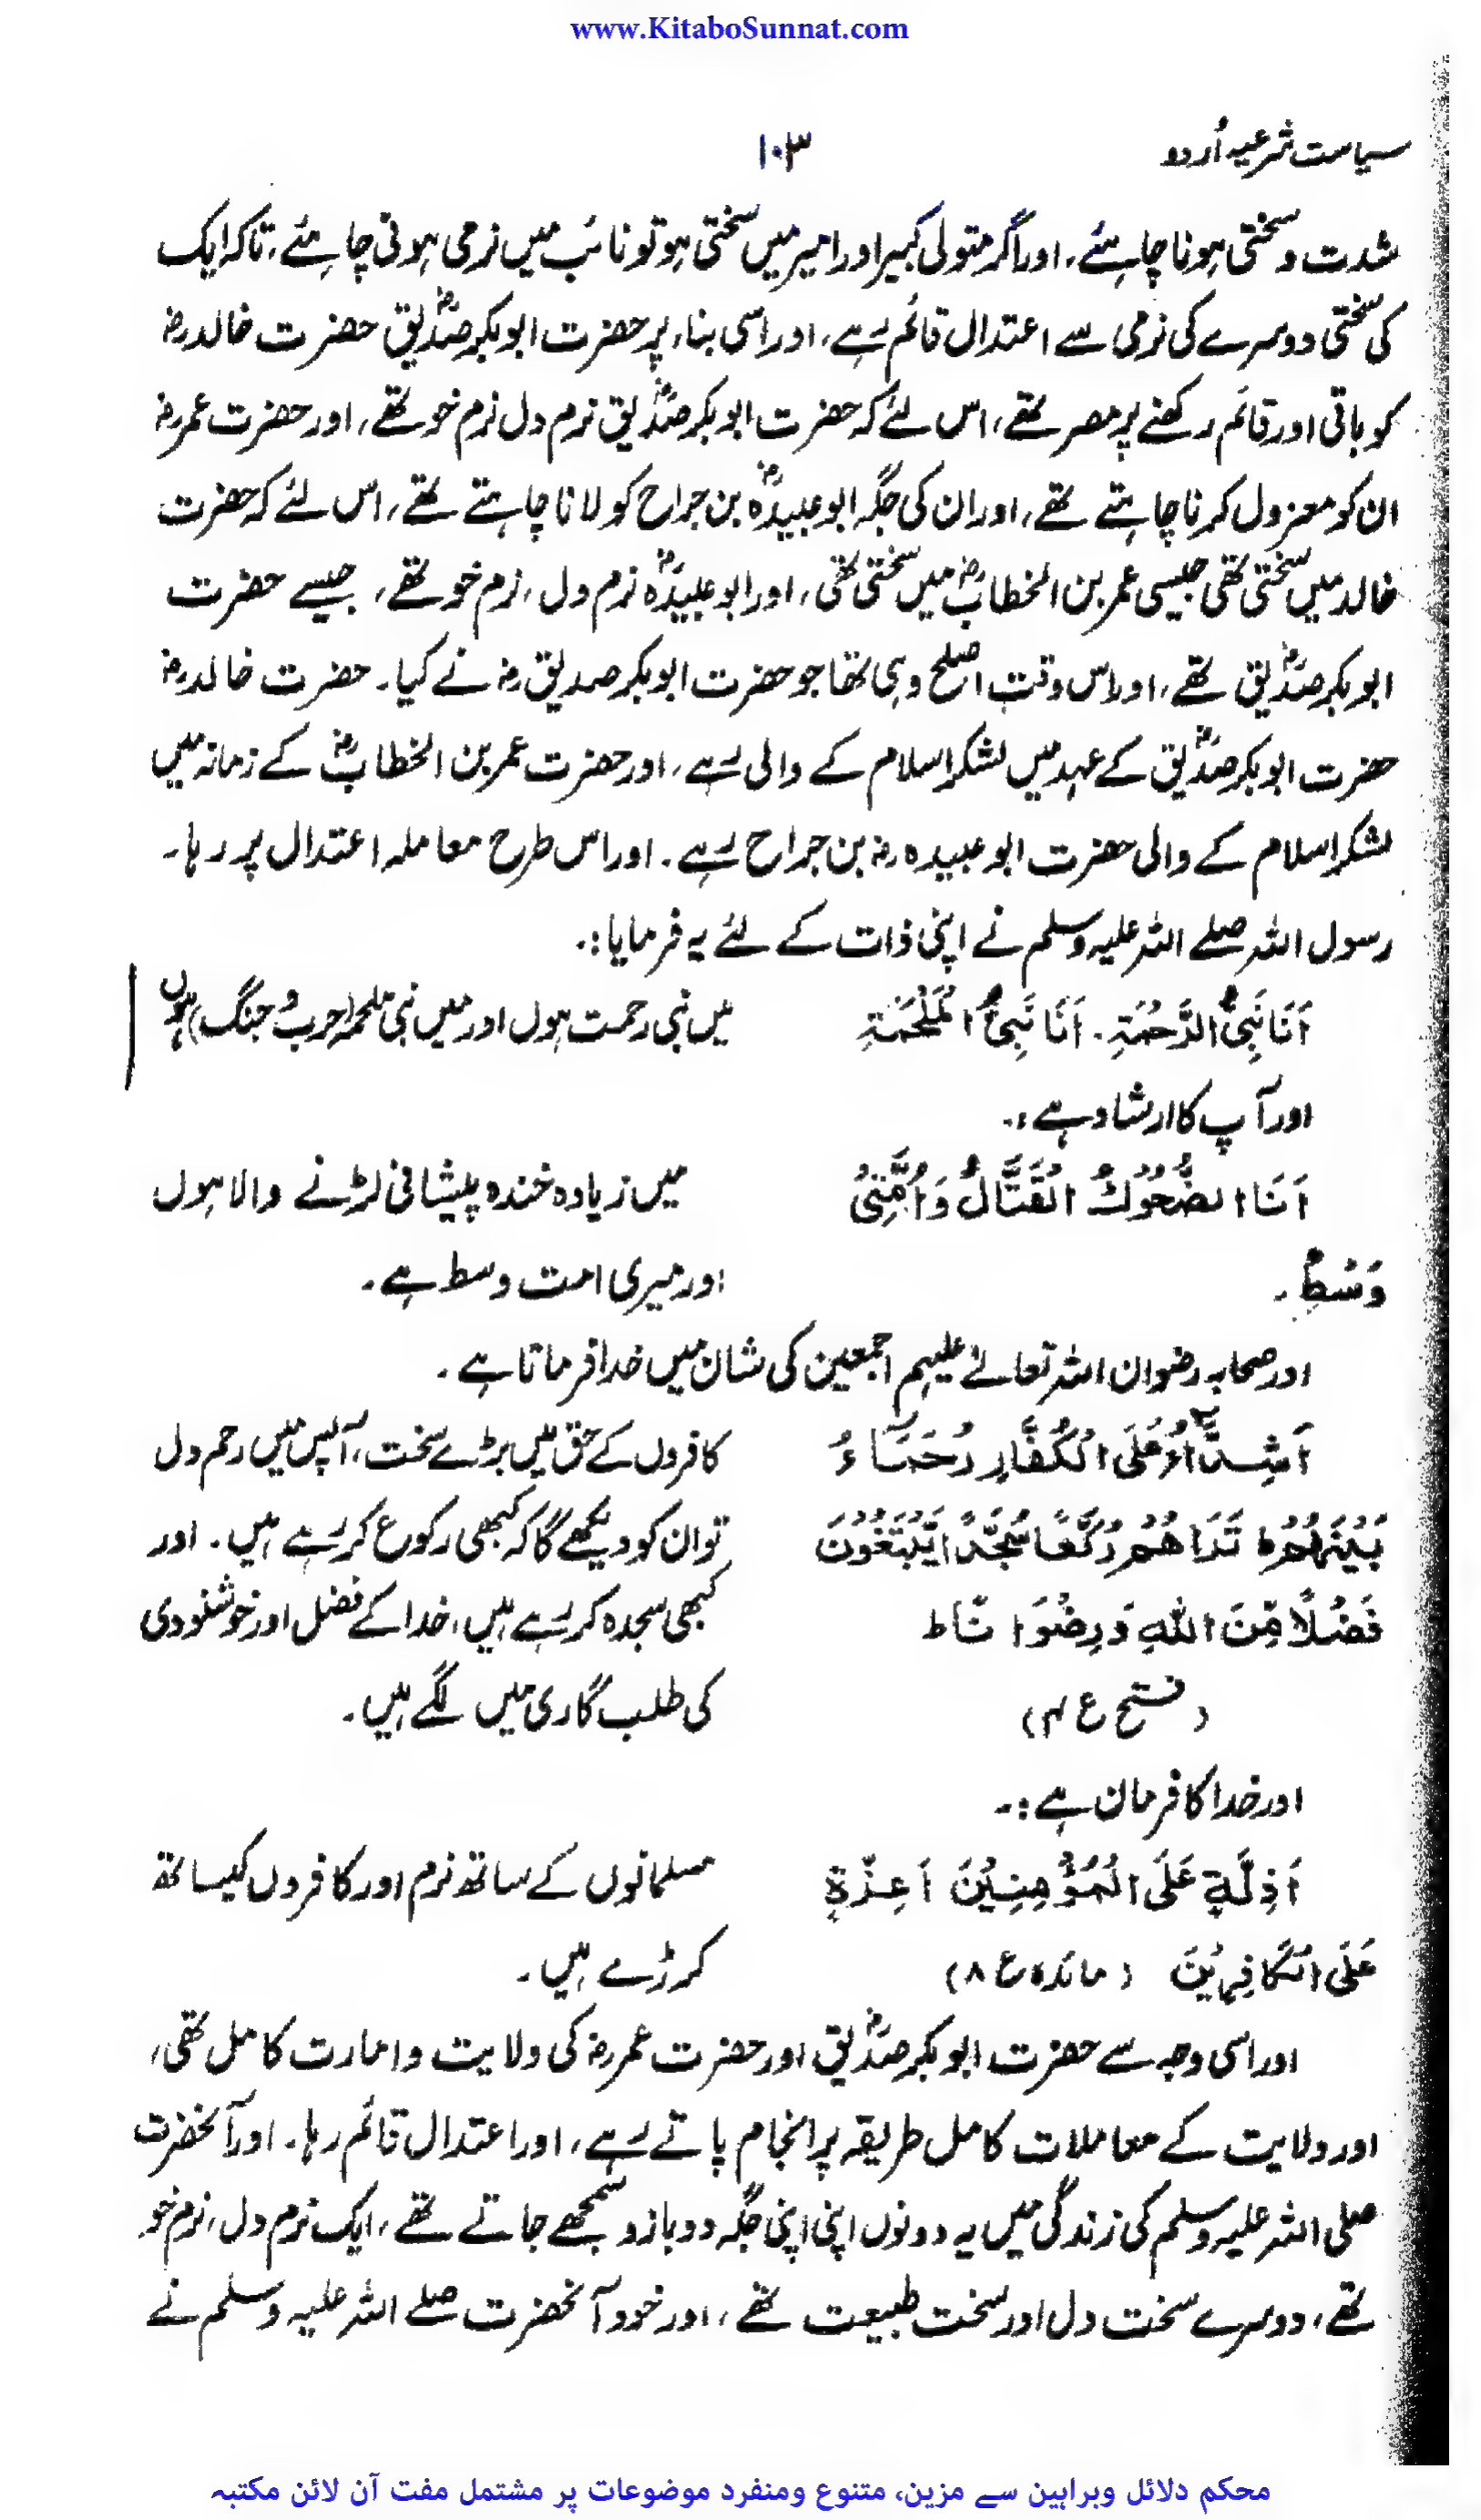 www.KitaboSunnat.com
سیاست شرعیہ اُردو
۱۰۳
شدت و سختی ہونا چاہئے، اور اگر متولی کبیر اور امیر میں سختی ہو تو نائب میں نرمی ہونی چاہئے، تاکہ ایک
کی سختی دوسرے کی نرمی سے اعتدال قائم رہے، اور اسی بناء پر حضرت ابوبکر صدیقؓ حضرت خالدرضؓ
کو باقی اور قائم رکھنے پر مصر تھے، اس لئے کہ حضرت ابوبکر صدیقؓ نرم دل نرم خو تھے، اور حضرت عمررضؓ
ان کو معزول کرنا چاہتے تھے، اور ان کی جگہ ابوعبیدہؓ بن جراح کو لانا چاہتے تھے، اس لئے کہ حضرت
خالد میں سختی تھی جیسی عمر بن الخطابؓ میں سختی تھی، اور ابوعبیدہؓ نرم دل، نرم خو تھے، جیسے حضرت
ابوبکر صدیقؓ تھے، اور اس وقت اصلح وہی تھا جو حضرت ابوبکر صدیق رضؓ نے کیا۔ حضرت خالدرضؓ
حضرت ابوبکر صدیقؓ کے عہد میں لشکر اسلام کے والی رہے، اور حضرت عمر بن الخطابؓ کے زمانہ میں
لشکر اسلام کے والی حضرت ابوعبیدہ رضؓ بن جراح رہے۔ اور اس طرح معاملہ اعتدال پر رہا۔
رسول اللہ صلے اللہ علیہ وسلم نے اپنی ذات کے لئے یہ فرمایا:۔
اَنَا نَبِیُّ الرَّحْمَۃِ۔ اَنَا نَبِیُّ الْمَلْحَمَۃِ
میں نبی رحمت ہوں اور میں نبی ملحمہ (حرب و جنگ) ہوں
اور آپ کا ارشاد ہے:۔
اَنَا الضَّحُوْكُ الْقَتَّالُ وَاُمَّتِیْ
میں زیادہ خندہ پیشانی لڑنے والا ہوں
وَسَطٌ۔
اور میری امت وسط ہے۔
اور صحابہ رضوان اللہ تعالےٰ علیہم اجمعین کی شان میں خدا فرماتا ہے۔
اَشِدَّآءُ عَلَى الْكُفَّارِ رُحَمَآءُ
کافروں کے حق میں بڑے سخت، آپس میں رحم دل
بَيْنَهُمْ ط تَرَاهُمْ رُكَّعًا سُجَّدًا يَّبْتَغُوْنَ
تو ان کو دیکھے گا کہ کبھی رکوع کر رہے ہیں۔ اور
فَضْلًا مِّنَ اللّٰهِ وَرِضْوَانًا ط
کبھی سجدہ کر رہے ہیں، خدا کے فضل اور خوشنودی
(فتح ع ۴)
کی طلب گاری میں لگے ہیں۔
اور خدا کا فرمان ہے:۔
اَذِلَّةٍ عَلَى الْمُؤْمِنِيْنَ اَعِزَّةٍ
مسلمانوں کے ساتھ نرم اور کافروں کیساتھ
عَلَى الْكَافِرِيْنَ (مائدہ ع ۸)
کرڑے ہیں۔
اور اسی وجہ سے حضرت ابوبکر صدیقؓ اور حضرت عمررضؓ کی ولایت و امارت کامل تھی،
اور ولایت کے معاملات کامل طریقہ پر انجام پاتے رہے، اور اعتدال قائم رہا۔ اور آنحضرت
صلی اللہ علیہ وسلم کی زندگی میں یہ دونوں اپنی اپنی جگہ دو بازو سمجھے جاتے تھے، ایک نرم دل، نرم خو
تھے، دوسرے سخت دل اور سخت طبیعت تھے، اور خود آنحضرت صلے اللہ علیہ وسلم نے
محکم دلائل وبراہین سے مزین، متنوع ومنفرد موضوعات پر مشتمل مفت آن لائن مکتبہ